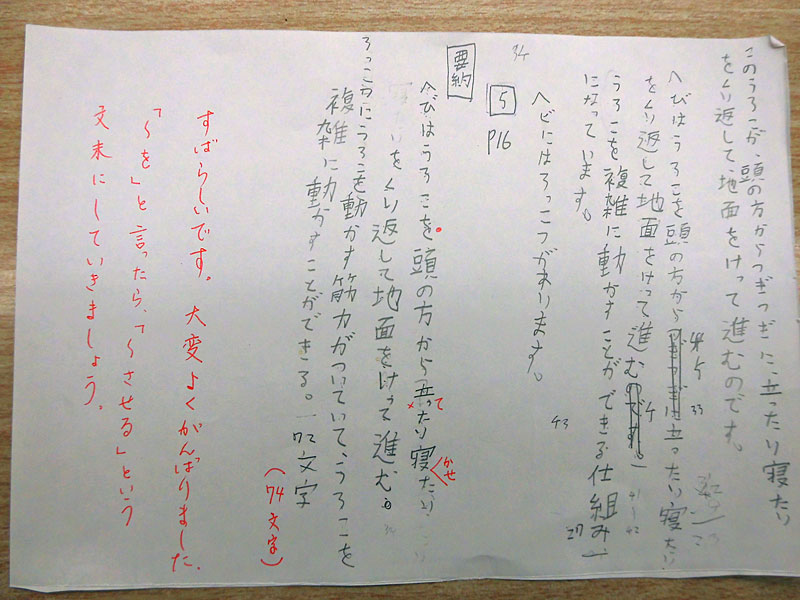 このうろこが、頭の方からつぎつぎに立ったり寝たり
をくり返して、地面をけって進むのです。
へびはうろこを頭の方からつぎつぎに立ったり寝たり
をくり返して地面をけって進むのです。
うろこを複雑に動かすことができる仕組み
になっています。
ヘビにはろっこつがあります。
34
5
P16
要約
へびはうろこを頭の方から立ったり寝たり
をくり返して地面をけって進む。
ろっこつにうろこを動かす筋力がついていて、うろこを
複雑に動かすことができる。
72文字
て
かせ
(74文字)
すばらしいです。大変よくがんばりました。
「〜を」と言ったら、「〜させる」という
文末にしていきましょう。
33
43
27